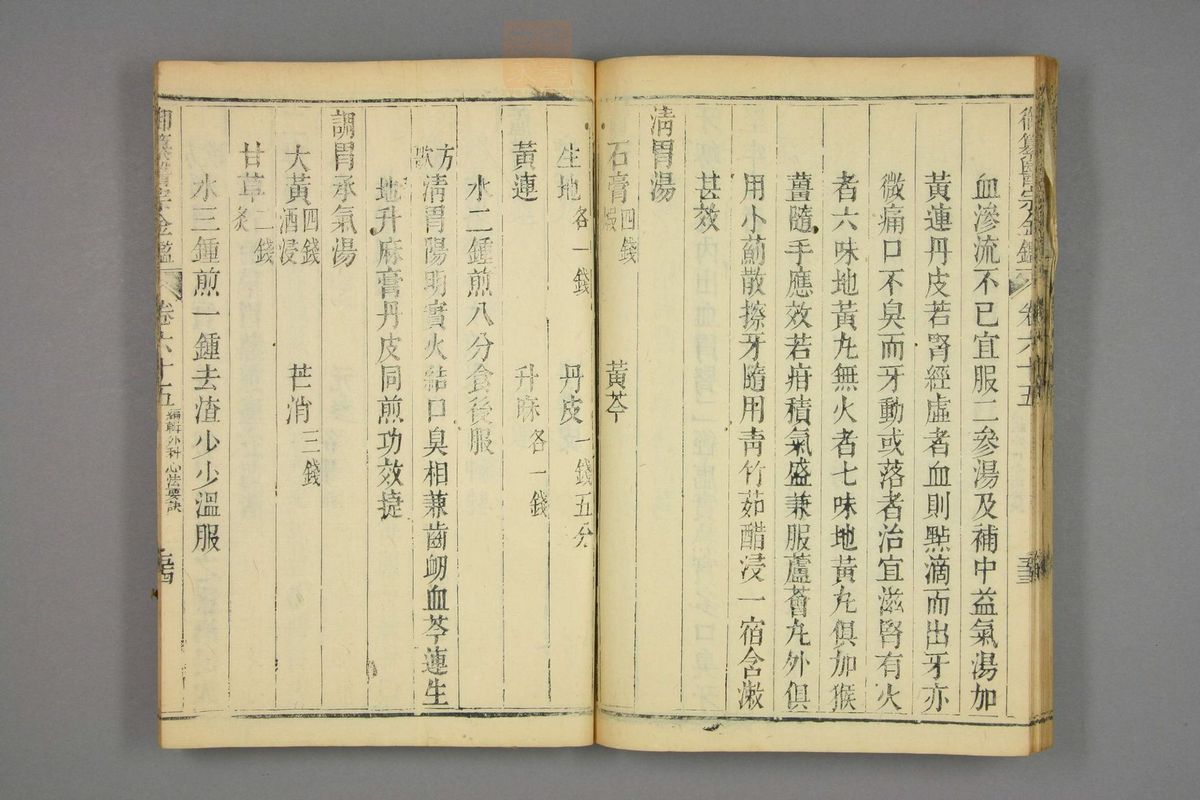 御纂醫宗金鑑 卷六十五
血滲流不已宜服二參湯及補中益氣湯加
黃連丹皮若腎經虛者血則㸃滴而出牙亦
微痛口不臭而牙動或落者治宜滋腎有火
者六味地黃丸無火者七味地黃丸俱加猴
薑隨手應效若疳積氣盛兼服蘆薈丸外俱
用小薊散擦牙隨用靑竹茹醋浸一宿含漱
甚效
淸胃湯
石膏四錢煅 黃芩
生地各一錢 丹皮一錢五分
黃連 升麻各一錢
水二鍾煎八分食後服
方歌淸胃陽明實火結口臭相兼齒衂血芩連生
地升麻膏丹皮同煎功效㨗
調胃承氣湯
大黃四錢酒浸 芒消三錢
甘草二錢炙
水三鍾煎一鍾去渣少少溫服
御纂醫宗金鑑 卷六十五 編輯外科心法要訣